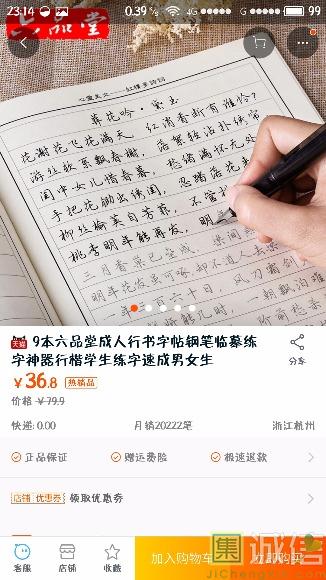 23:14
0.39
4G
99
六品堂
心灵美文——红楼梦诗词
葬花吟·黛玉
花谢花飞花满天，红消香断有谁怜？
游丝软系飘春榭，落絮轻沾扑绣帘
闺中女儿惜春暮，愁绪满怀无处
手把花锄出绣闺，忍踏落花去
柳丝榆荚自芳菲，不管桃
桃李明年能再发，明
三月香巢已垒成，
9本六品堂成人行书字帖钢笔临摹练
字神器行楷学生练字速成男女生
分享
￥36.8 热销品
价格 ￥79.9
快递: 0.00 月销20222笔 浙江杭州
正品保证 赠运费险 极速退款
店铺优惠券 领取优惠券
客服 店铺 收藏 加入购物车 立即购买
集 诚信
JiCheng